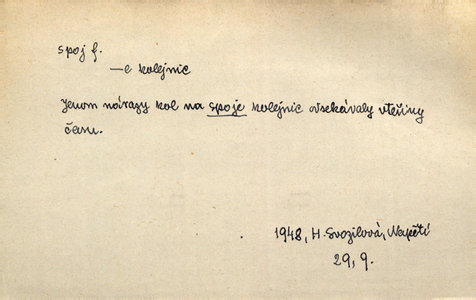 spoj f.
—e kolejnic
Jenom nárazy kol na spoje kolejnic odsekávaly vteřiny
času.
1948, H. Svozilová, Napětí
29, 9.